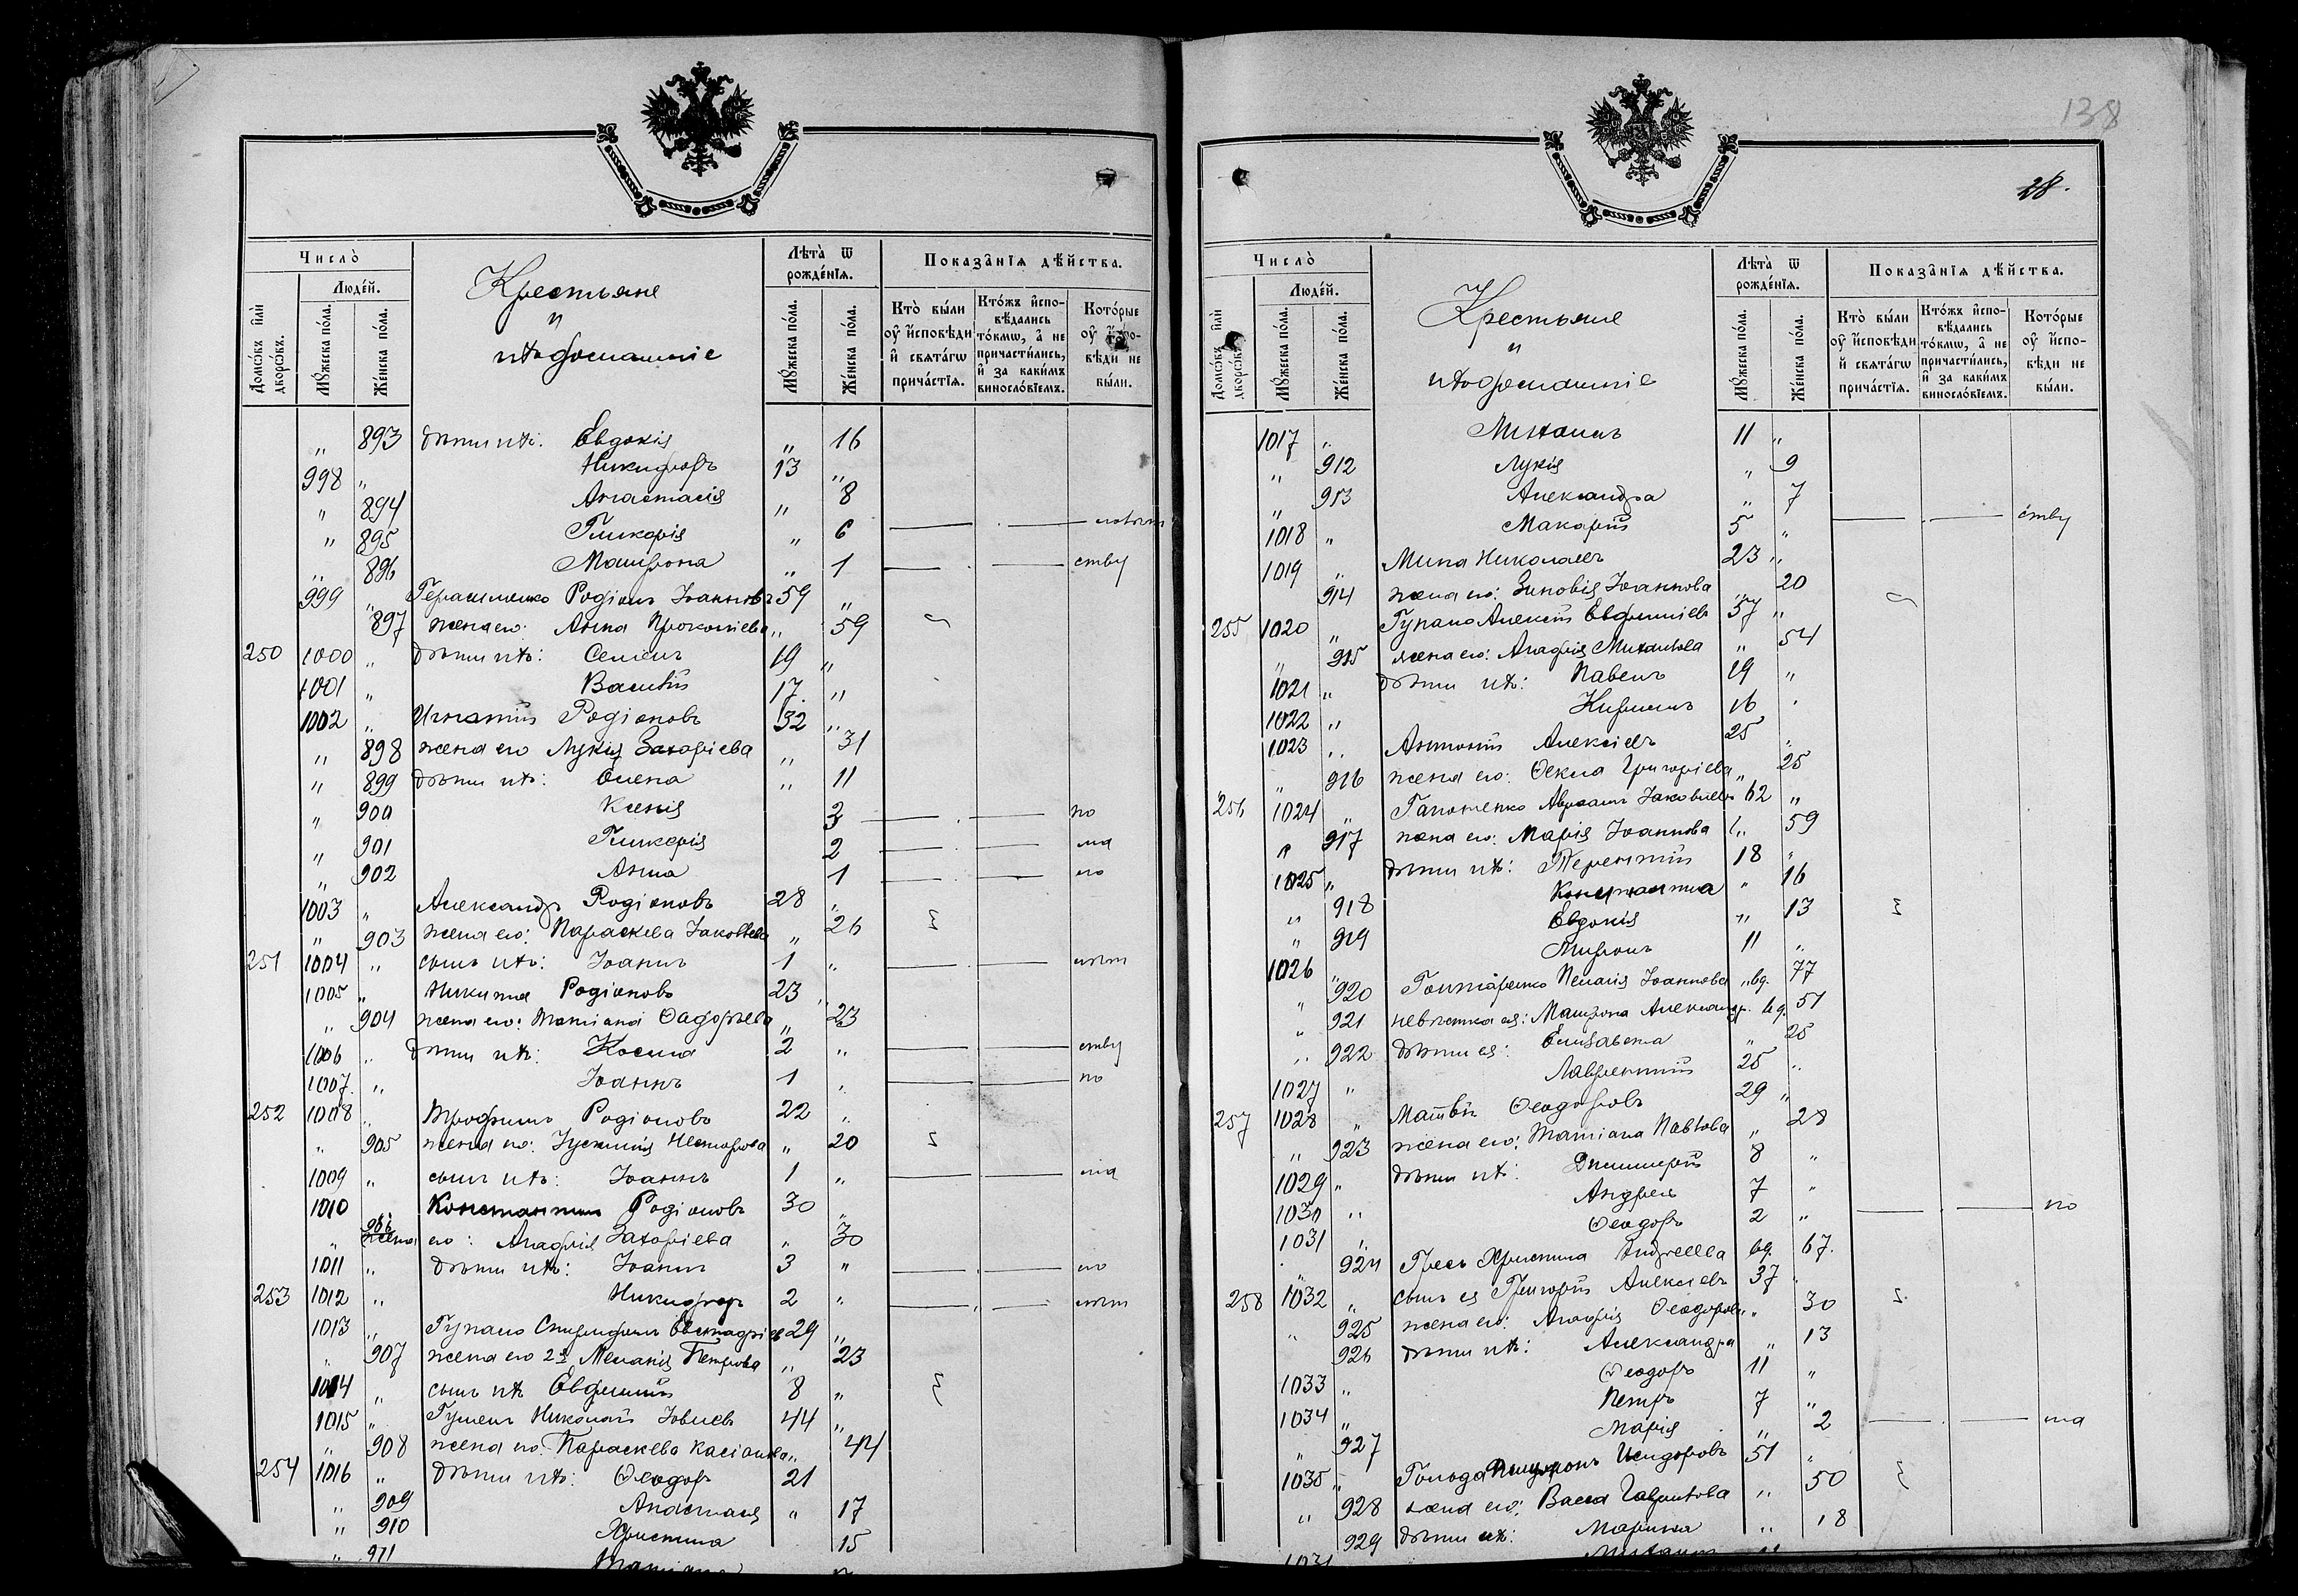 Число̀
Людéй.
Домѡ́въ и҆лѝ дворѡ́въ.
Мꙋ́жеска по́ла.
Же́нска по́ла.
Крестьяне
и
ихъ домашніе
Лѣта̀ ѿ рождéнїѧ.
Мꙋ́жеска по́ла.
Же́нска по́ла.
Показа̑нїѧ дѣ́йства.
Кто̀ бы́ли ᲂу҆ и҆́сповѣди и҆ свѧта́гѡ прича́стїѧ.
Кто́жъ и҆спо-вѣ́дались то́кмѡ, а҆ не причасти́лись, и҆ за каки́мъ винослóвїемъ.
Кото́рые ᲂу҆ и҆́спо-вѣди не бы́ли.
" 893 дѣти ихъ: Евдокія " 16
998 " Никифоръ 13 "
" 894 Анастасія " 8
" 895 Гликерія " 6
" 896 Матрона " 1 ству
999 " Герасименко Родіонъ Іоанновъ 59 "
897 жена его: Анна Прокопіева " 59
250 1000 " дѣти ихъ: Семенъ 19 "
1001 " Василій 17. "
1002 " Игнатій Родіоновъ 32 "
" 898 жена его Лукія Захаріева " 31
" 899 дѣти ихъ: Елена " 11
" 900 Ксенія 3 по
" 901 Гликерія 2 ма
" 902 Анна 1 ло
1003 " Александръ Родіоновъ 28 "
" 903 жена его: Параскева Іаковлева " 26
251 1004 " сынъ ихъ: Іоаннъ 1 "
1005 " Никита Родіоновъ 23 "
" 904 жена его: Татіана Ѳадѣева " 23
1006 " дѣти ихъ: Косма 2 " ству
1007. " Іоаннъ 1 " по
252 1008 " Трофимъ Родіоновъ 22 "
" 905 жена его: Іустинія Несторова " 20
1009 " сынъ ихъ: Іоаннъ 1 " ма
1010 " Константинъ Родіоновъ 30 "
" 906 жена его: Агафія Захаріева " 30
1011 " дѣти ихъ: Іоаннъ 3 " ло
253 1012 " Никифоръ 2 "
1013 " Гупало Спиридонъ 29 "
" 907 жена его 2я Меланія Петрова " 23
1014 " сынъ ихъ Евфимій 8 "
1015 " Николай Іовлевъ 44 "
" 908 жена его: Параскева Касіанова " 44
254 1016 " дѣти ихъ: Ѳеодоръ 21
" 909 Анастасія " 17
" 910 Христина 15
" 911 Татіана
138
28.
Число̀
Людéй.
Домѡ́въ и҆лѝ дворѡ́въ.
Мꙋ́жеска по́ла.
Же́нска по́ла.
Крестьяне
и
ихъ домашніе
Лѣта̀ ѿ рождéнїѧ.
Мꙋ́жеска по́ла.
Же́нска по́ла.
Показа̑нїѧ дѣ́йства.
Кто̀ бы́ли ᲂу҆ и҆́сповѣди и҆ свѧта́гѡ прича́стїѧ.
Кто́жъ и҆спо-вѣ́дались то́кмѡ, а҆ не причасти́лись, и҆ за каки́мъ винослóвїемъ.
Кото́рые ᲂу҆ и҆́спо-вѣди не бы́ли.
1017 " Михаилъ 11 "
" 912 Лукія " 9
" 913 Александра " 7
1018 " Макарій 5 " ству
1019 " Мина Николаевъ 23 "
914 жена его: Зиновія Іоаннова " 20
255 1020 " Гупало Алексій Евфиміевъ 57 "
" 915 жена его: Агафія Михаилова " 54
1021 " дѣти ихъ: Павелъ 19 "
1022 " Кириллъ 16
1023 " Антоній Алексіевъ 25 "
" 916 жена его: Ѳекла Григоріева " 25
256 1024 " Гапоненко Авраамъ Іаковлевъ 62 "
" 917 жена его: Марія Іоаннова " 59
1025 " дѣти ихъ: Терентій 18 "
" 918 Константина " 16
" 919 Евдокія " 13
1026 " Миронъ 11 "
" 920 Гонтаренко Пелагія Іоаннова " вд. 77
" 921 невѣстка ея: Матрона Александр. вд. 51
" 922 дѣти ея: Елисавета " 25
1027 " Лаврентій 25 "
257 1028 " Матвѣй Ѳеодоровъ 29 "
" 923 жена его: Татіана Павлова " 28
1029 " дѣти ихъ: Димитрій 8 "
1030 " Андрей 7 "
1031 " Ѳеодоръ 2 " по
924 Гресь Христина Андреева вд. 67.
258 1032 " сынъ ея Григорій Алексіевъ 37
" 925 жена его: Агафія Ѳеодорова " 30
926 дѣти ихъ: Александра " 13
1033 " Ѳеодоръ 11 "
1034 " Петръ 7 "
" 927 Марія " 2 ма
1035 " Голода Исидоровъ 51 "
" 928 жена его: Васса Гавриилова " 50
929 дѣти ихъ: Марина " 18
Михаилъ